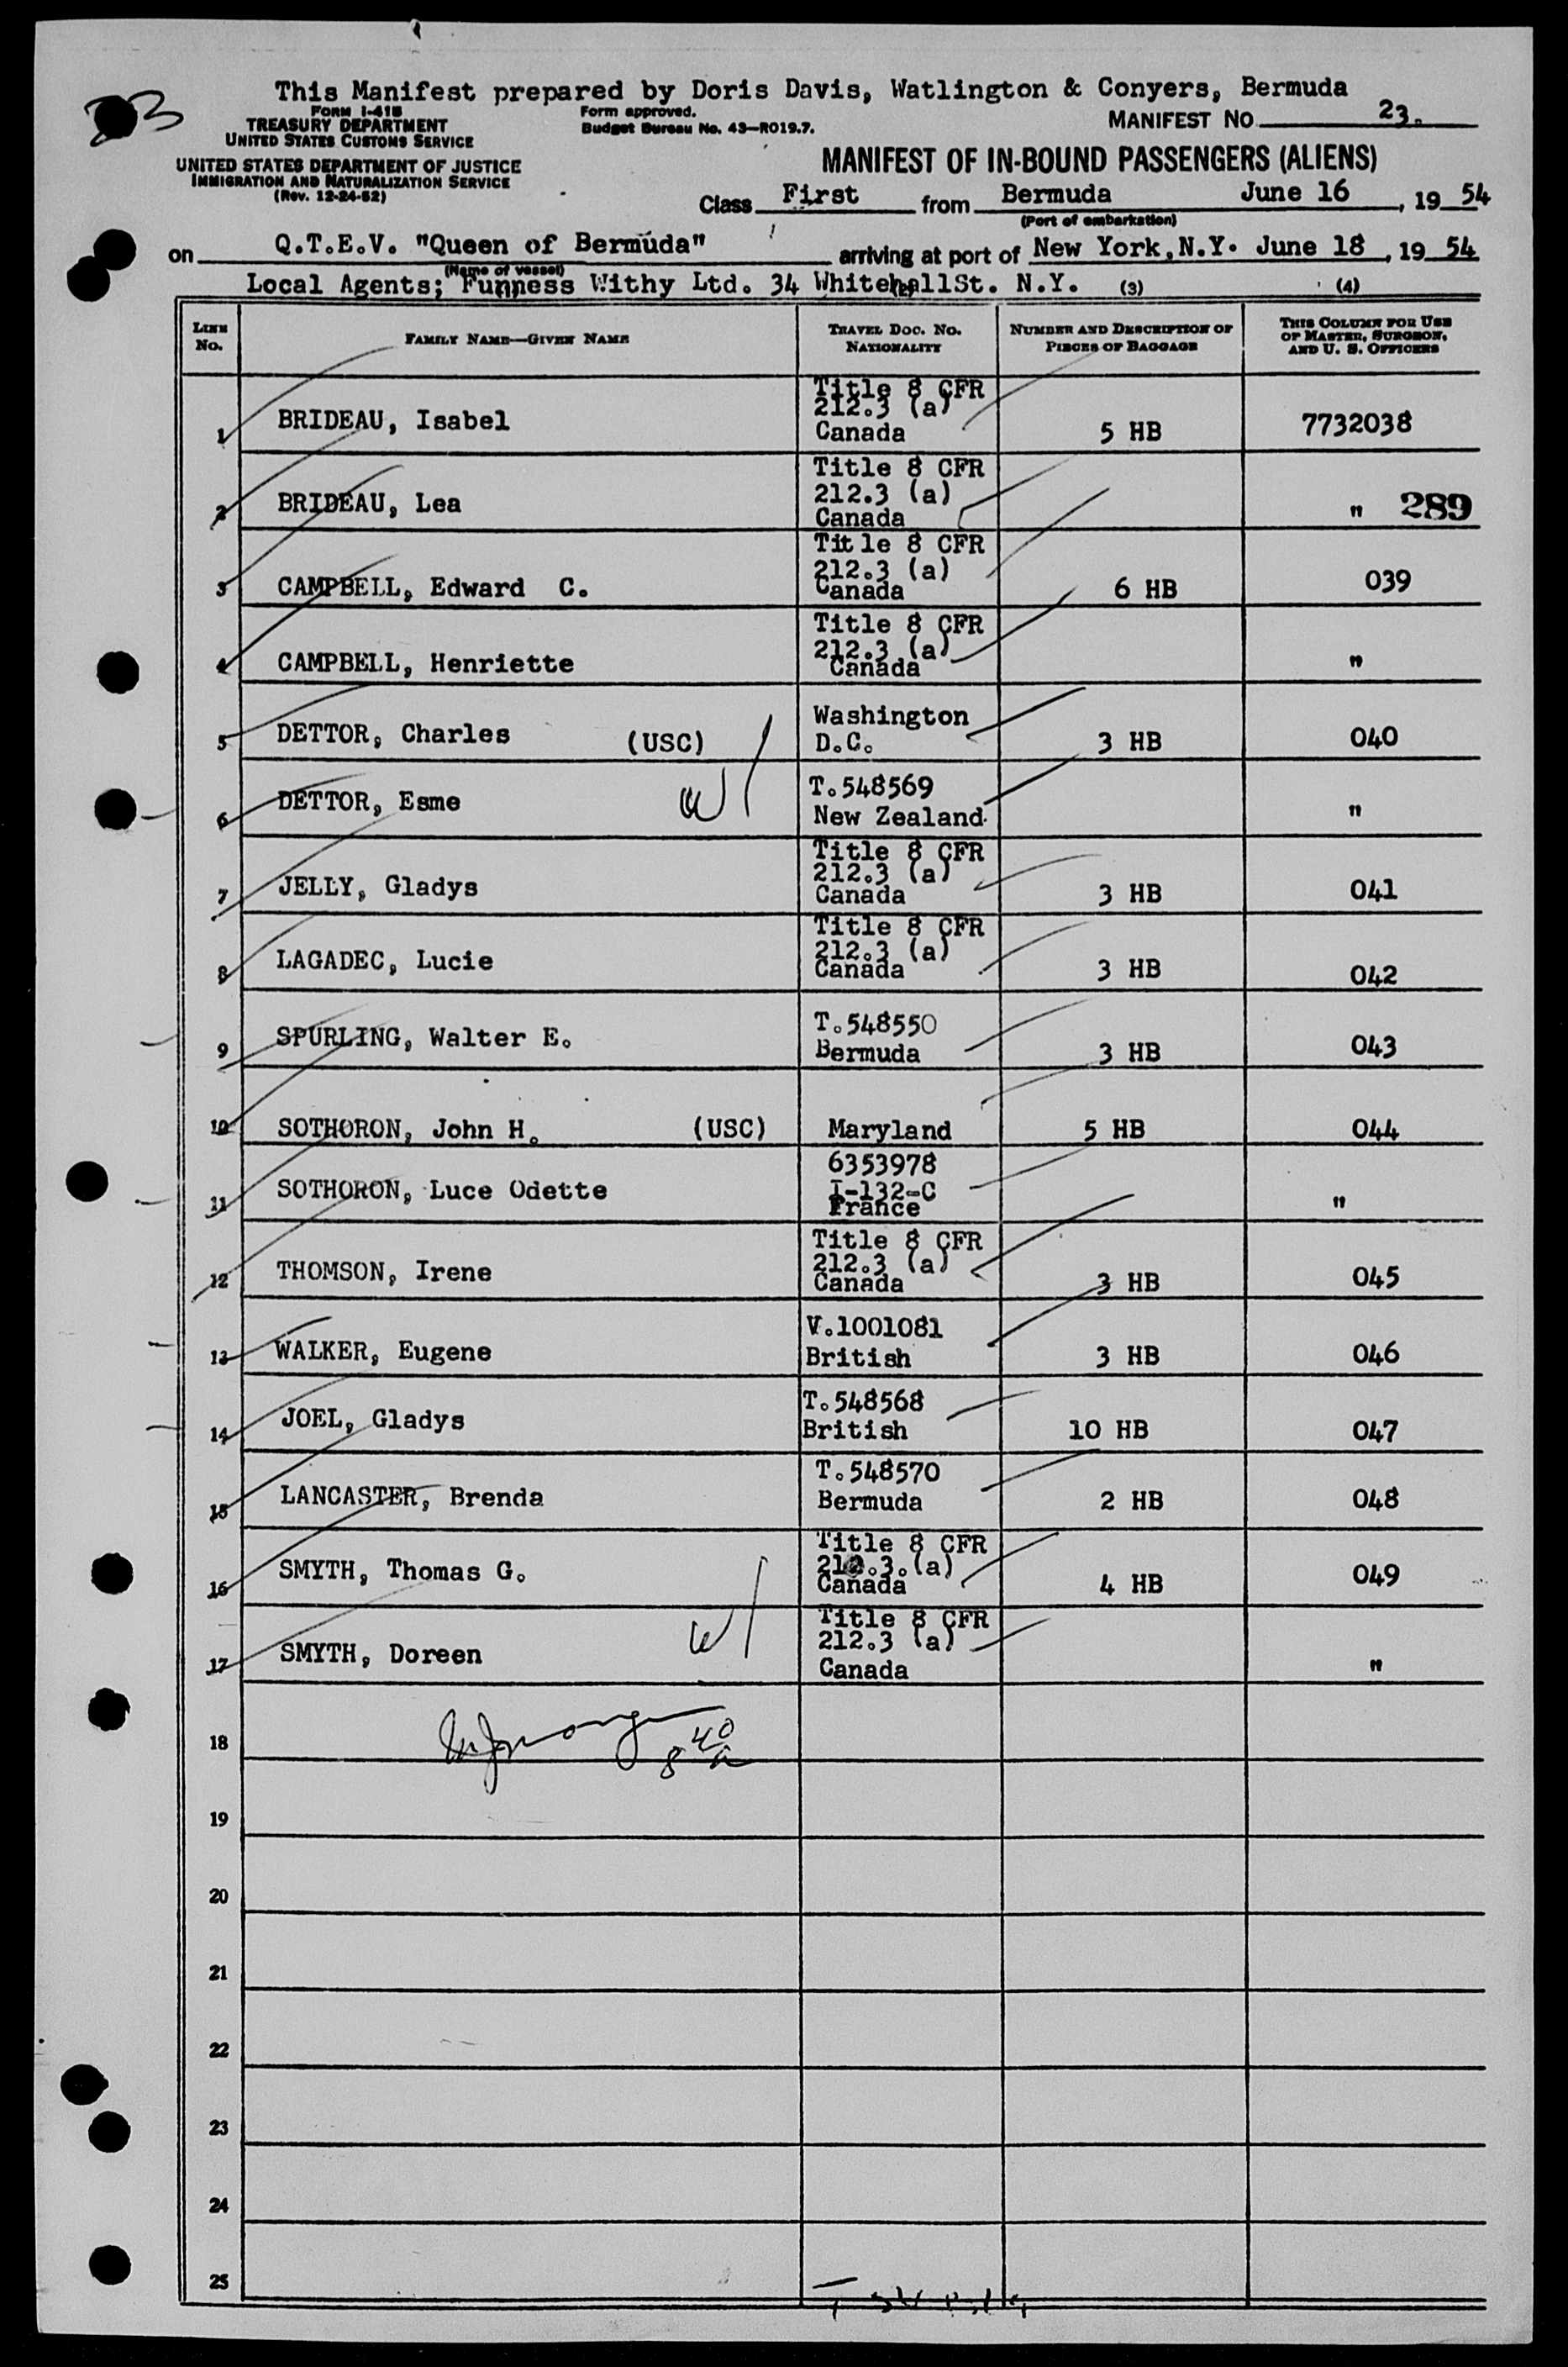 This Manifest prepared by Doris Davis, Watlington & Conyers, Bermuda
FORM I-418
TREASURY DEPARTMENT
UNITED STATES CUSTOMS SERVICE
UNITED STATES DEPARTMENT OF JUSTICE
IMMIGRATION AND NATURALIZATION SERVICE
(Rev. 12-24-52)
Form approved.
Budget Bureau No. 43-R019.7.
MANIFEST NO. 23.
MANIFEST OF IN-BOUND PASSENGERS (ALIENS)
Class First from Bermuda June 16, 19 54
(Port of embarkation)
on Q.T.E.V. "Queen of Bermuda" arriving at port of New York, N.Y. June 18, 19 54
(Name of vessel)
Local Agents; Funness Withy Ltd. 34 WhitehallSt. N.Y. (3) (4)
LINE No. FAMILY NAME—GIVEN NAME TRAVEL DOC. NO. NATIONALITY NUMBER AND DESCRIPTION OF PIECES OF BAGGAGE THIS COLUMN FOR USE OF MASTER, SURGEON, AND U. S. OFFICERS
1 BRIDEAU, Isabel Title 8 CFR 212.3 (a) Canada 5 HB 7732038
2 BRIDEAU, Lea Title 8 CFR 212.3 (a) Canada " 289
3 CAMPBELL, Edward C. Title 8 CFR 212.3 (a) Canada 6 HB 039
4 CAMPBELL, Henriette Title 8 CFR 212.3 (a) Canada "
5 DETTOR, Charles (USC) Washington D.C. 3 HB 040
6 DETTOR, Esme T.548569 New Zealand "
7 JELLY, Gladys Title 8 CFR 212.3 (a) Canada 3 HB 041
8 LAGADEC, Lucie Title 8 CFR 212.3 (a) Canada 3 HB 042
9 SPURLING, Walter E. T.548550 Bermuda 3 HB 043
10 SOTHORON, John H. (USC) Maryland 5 HB 044
11 SOTHORON, Luce Odette 6353978 I-132-C France "
12 THOMSON, Irene Title 8 CFR 212.3 (a) Canada 3 HB 045
13 WALKER, Eugene V.1001081 British 3 HB 046
14 JOEL, Gladys T.548568 British 10 HB 047
15 LANCASTER, Brenda T.548570 Bermuda 2 HB 048
16 SMYTH, Thomas G. Title 8 CFR 212.3.(a) Canada 4 HB 049
17 SMYTH, Doreen Title 8 CFR 212.3 (a) Canada "
18
19
20
21
22
23
24
25